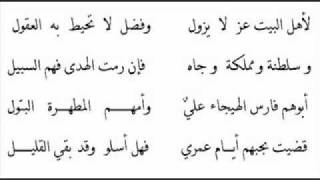 لأهل البيت عز لا يزول وفضل لا تحيط به العقول
و سلطنة و مملكة و جاه فإن رمت الهدى فهم السبيل
أبوهم فارس الهيجاء عليٌ وأمهم المطهرة البتول
قضيت بحبهم أيام عمري فهل أسلو وقد بقي القليل